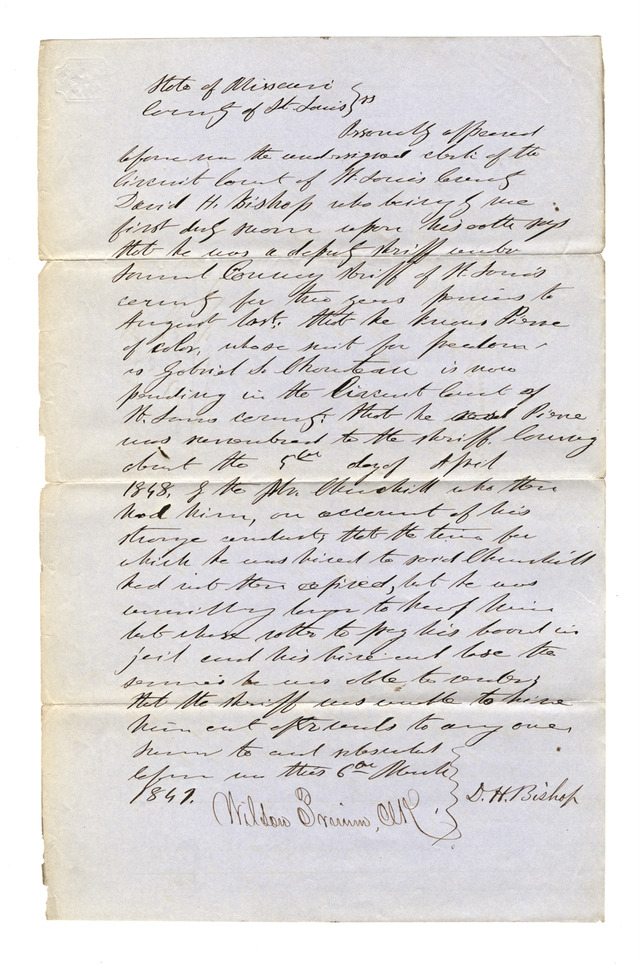 State of Missouri
County of St Louis } ss
Personally appeared
before me the undersigned clerk of the
Circuit Court of St Louis County
David H. Bishop who being by me
first duly sworn upon his oath says
that he was a deputy sheriff under
Samuel Conway sheriff of St Louis
county for two years previous to
August last; that he knows Pierre
of color, whose suit for freedom
vs Gabriel S. Chouteau is now
pending in the Circuit Court of
St. Louis county; that he said Pierre
was surrendered to the sheriff, Conway
about the 5th day of April
1848, by the Mr. Churchill who then
had him, on account of his
strange conduct, that the time for
which he was hired to said Churchill
had not then expired, but he was
unwilling longer to keep him
but chose rather to pay his board in
jail and his hire and lose the
services he was able to render
that the sheriff was unable to hire
him out afterwards to any one.
Sworn to and subscribed
before me this 6th March
1849. D. H. Bishop
Wilson Primm, Clk